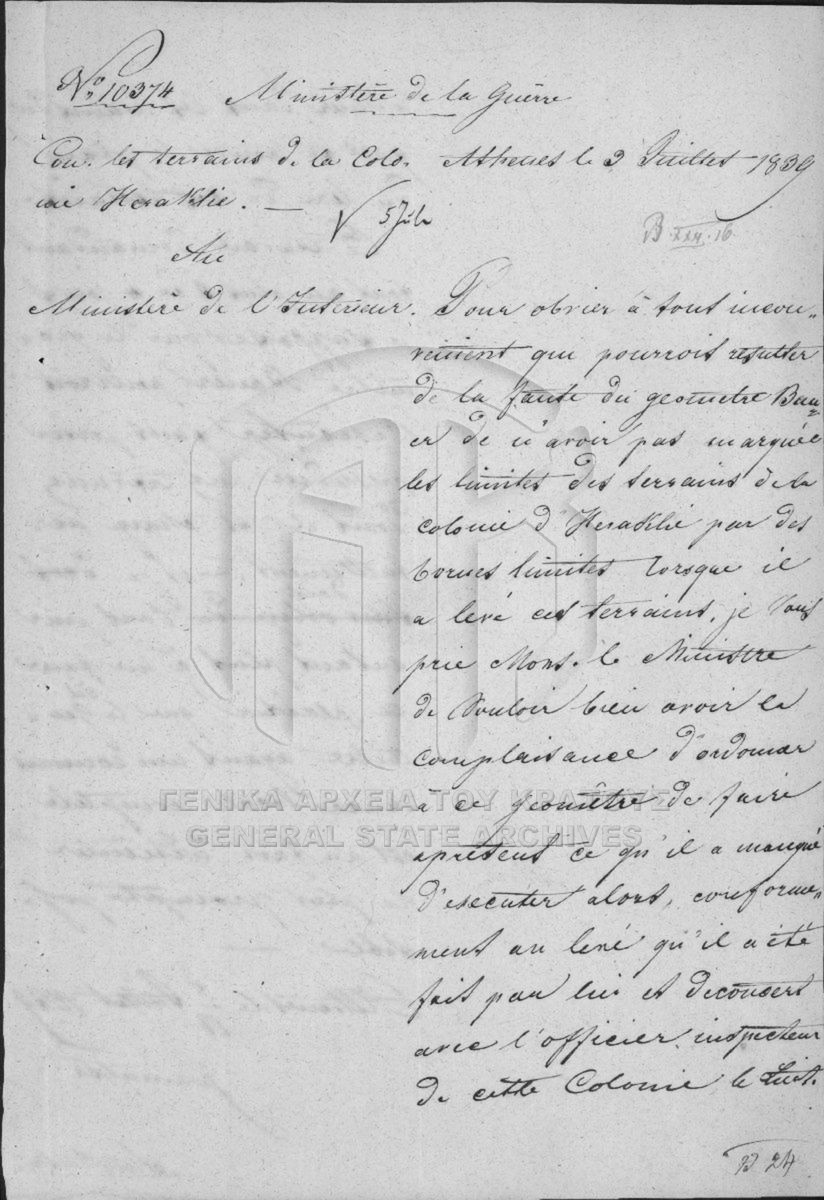 No 10374 Ministère de la Guerre
Con. les terrains de la Colo. Athenes le 3 Juillet 1839
nie Heraklie. —
5 Jul.
B. XXII. 16
Au
Ministère de l'Interieur. Pour obvier à tout incon„
venient qui pourroit resulter
de la faute du geometre Bau„
er de n'avoir pas marquée
les limites des terrains de la
colonie d'Heraklie par des
bornes limites lorsque il
a levé ces terrains, je Vous
prie Mons. le Ministre
de Vouloir bien avoir la
complaisance d'ordonner
à ce geomètre de faire
apresent ce qu'il a manqué
d'executer alors, conforme„
ment au levé qu'il a été
fait par lui et deconcert
avec l'officier inspecteur
de cette Colonie le Lieut.
B 24
ΓΕΝΙΚΑ ΑΡΧΕΙΑ ΤΟΥ ΚΡΑΤΟΥΣ
GENERAL STATE ARCHIVES